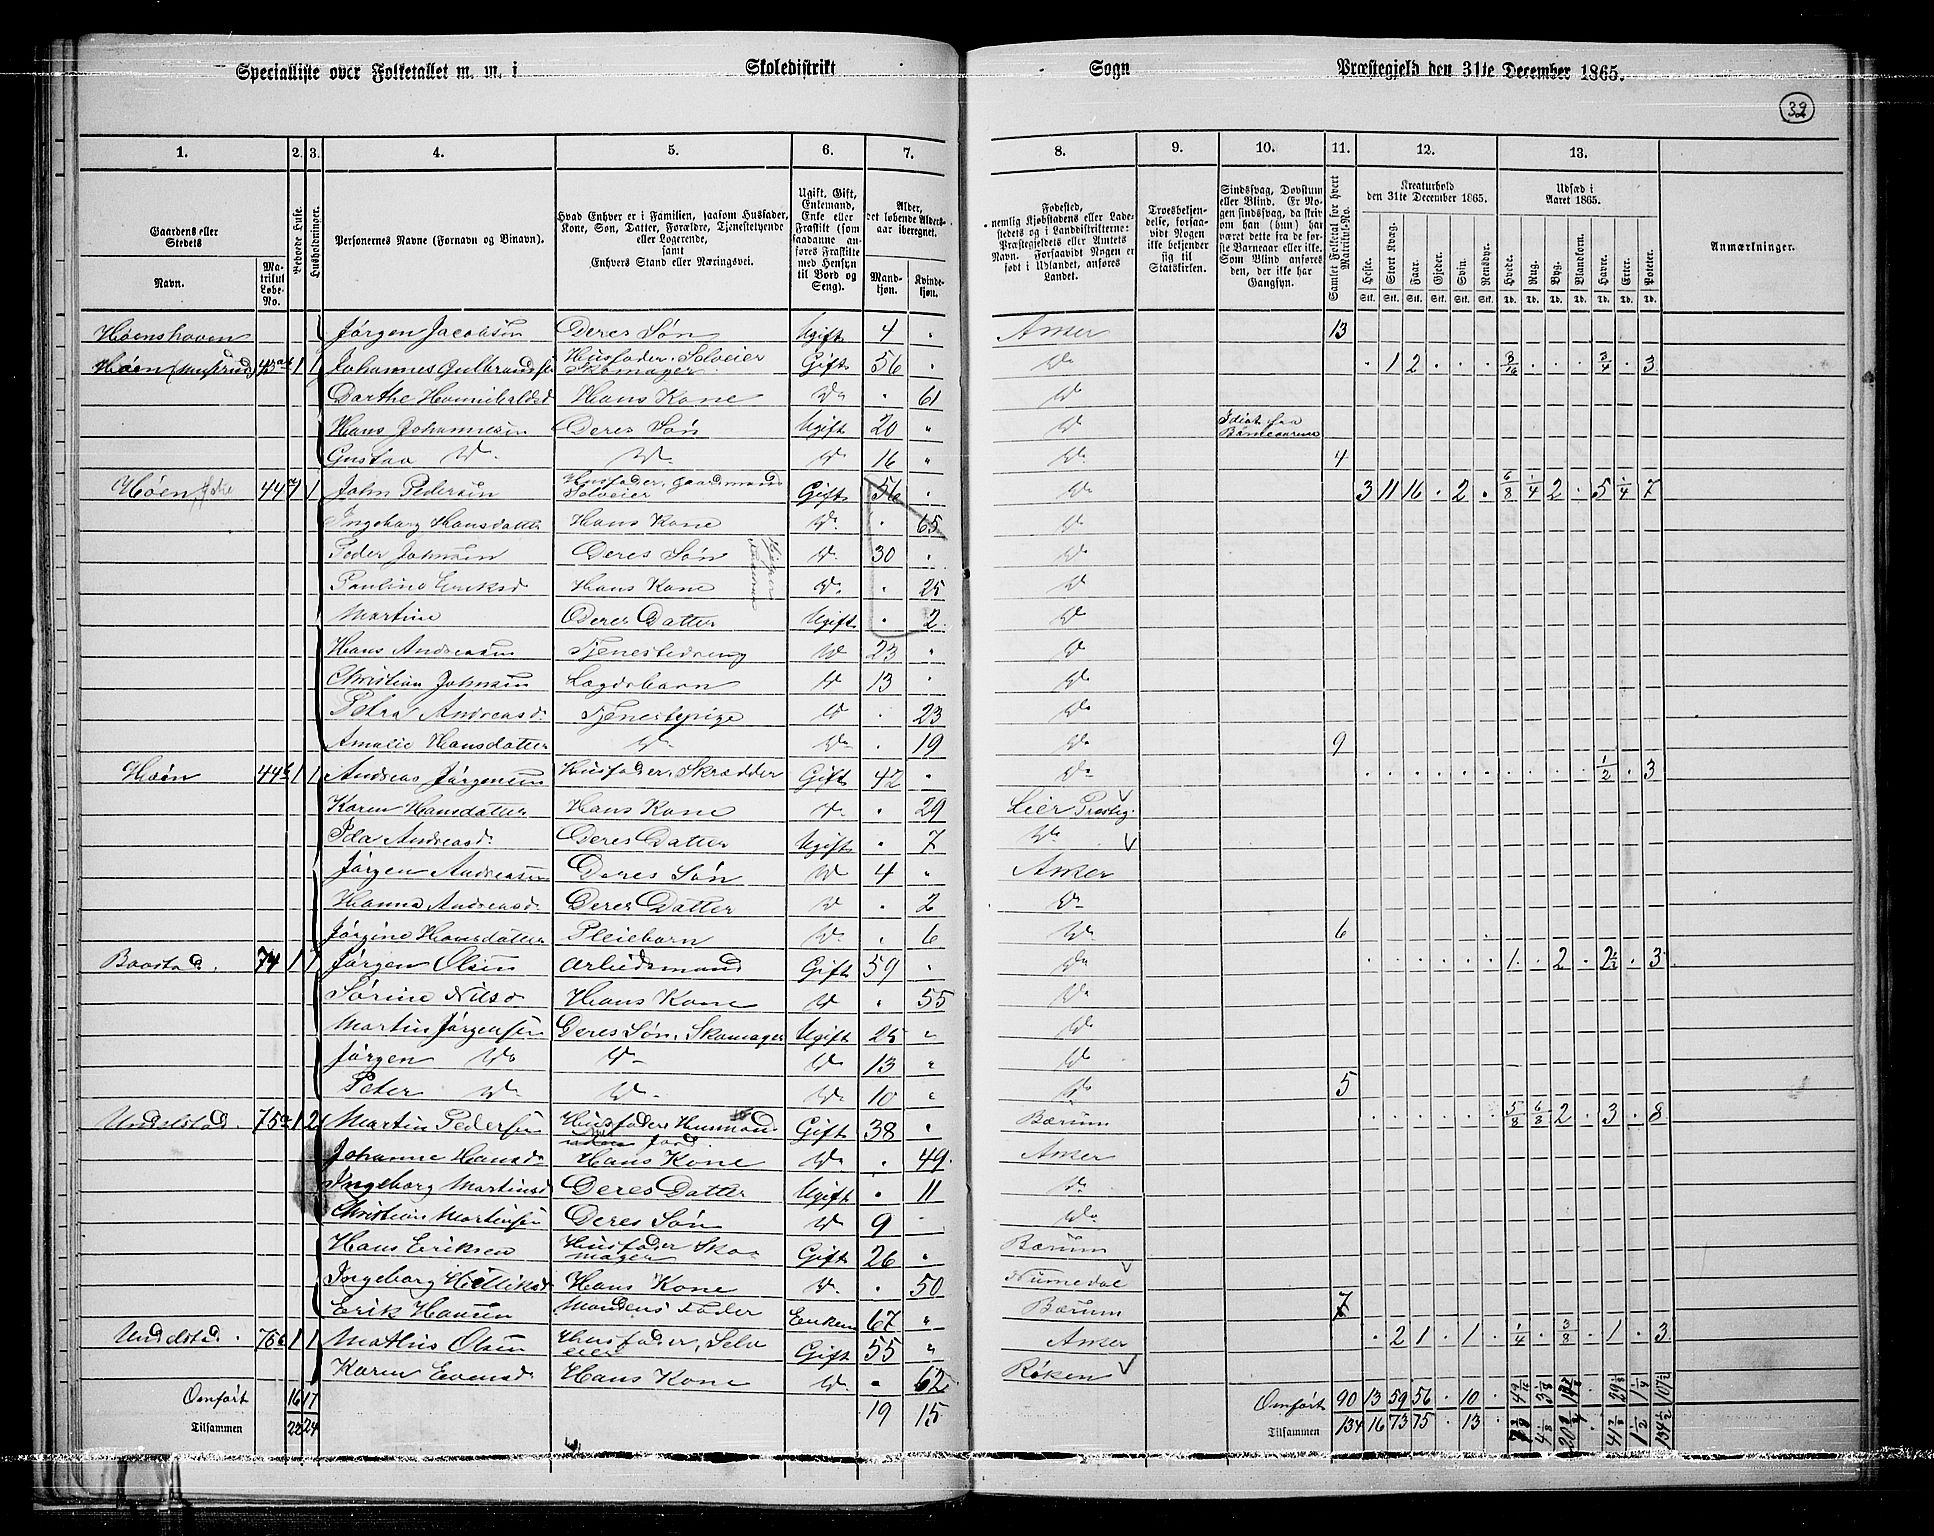 Specialliste over Folketallet m. m. i Skoledistrikt Sogn Præstegjeld den 31te December 1865.
32
1. 2. 3. 4. 5. 6. 7. 8. 9. 10. 11. 12. 13.
Gaardens eller Stedets
Navn.
Matrikul Løbe-No.
Beboede Huse.
Husholdninger.
Personernes Navne (Fornavn og Binavn).
Hvad Enhver er i Familien, saasom Husfader, Kone, Søn, Datter, Forældre, Tjenestetyende eller Logerende, samt Enhvers Stand eller Næringsvei.
Ugift, Gift, Enkemand, Enke eller Fraskilt (som saadanne anføres Fraskilte med Hensyn til Bord og Seng).
Alder, det løbende Aldersaar iberegnet.
Mandkjøn.
Kvindekjøn.
Fødested, nemlig Kjøbstadens eller Ladestedets og i Landdistrikterne: Præstegjeldets eller Amtets Navn. Forsaavidt Nogen er født i Udlandet, anføres Landet.
Troesbekjendelse, forsaavidt Nogen ikke bekjender sig til Statskirken.
Sindssvag, Døvstum eller Blind. Er Nogen sindssvag, da skrives om han (hun) har været dette fra de første Barneaar eller ikke. Som Blind anføres den, der ikke har Gangsyn.
Samlet Folketal for hvert Matrikul-No.
Kreaturhold den 31te December 1865.
Heste. Stort Kvæg. Faar. Gjeder. Svin. Rensdyr.
Udsæd i Aaret 1865.
Hvede. Rug. Byg. Blandkorn. Havre. Erter. Poteter.
Anmærkninger.
Stk. Stk. Stk. Stk. Stk. Stk. Td. Td. Td. Td. Td. Td. Td.
Høenshaven Jørgen Jacobsen Deres Søn Ugift 4 " Asker 13
Høen 1 1 Johannes Gulbrands Husfader, Selveier Skomager Gift 56 " Do . 1 2 . . . 3/16 . . . 3/4 . 3
Dorthe Hannibaldsd Hans Kone Do . 61 Do
Hans Johannesen Deres Søn Ugift 20 " Do Idiot fra Barneaarene
Gustav Do Do Do 16 " Do 4
Høen 44 1 John Pedersen Husfader, Gaardmand Selveier Gift 56 . Do 3 11 16 . 2 . 6/8 1/4 2 . 5 1/4 7
Ingeborg Hansdatter Hans Kone Do . 65 Do
Peder Johnsen Deres Søn Do 30 . Do
Pauline Eriksd Hans Kone Do . 25 Do
Martine Deres Datter Ugift . 2 Do
Hans Andreasen Tjenestedreng Do 23 " Do
Christian Johnsen Lægdsbarn Do 13 " Do
Petra Andreasd. Tjenestepige Do . 23 Do
Amalie Hansdatter Do Do . 19 Do 9
Høen 44b 1 1 Andreas Jørgensen Husfader, Skrædder Gift 42 " Do . . . . . . . . . . 1/2 . 3
Karen Hansdatter Hans Kone Do . 29 Lier Præsteg.
Ida Andreasd. Deres Datter Ugift . 7 Do
Jørgen Andreasen Deres Søn Do 4 " Asker
Hanna Andreasd. Deres Datter Do . 2 Do
Jørgine Hansdatter Pleiebarn Do . 6 Do 6
Braatad. 74 1 1 Jørgen Olsen Arbeidsmand Gift 59 " Do . . . . . . 1 . 2 . 2 1/2 . 3
Sørine Nilsd Hans Kone Do " 55 Do
Martin Jørgensen Deres Søn, Skomager Ugift 25 " Do
Jørgen Do Do Do 13 " Do
Peter Do Do Do 10 " Do 5
Undelstad. 75a 1 2 Martin Pedersen Husfader Husmand Jord Gift 38 . Bærum . . . . . . 5/8 6/8 2 . 3 . 8
Johanne Hansd. Hans Kone Do . 49 Asker
Ingeborg Martinsd Deres Datter Ugift . 11 Do
Christian Martinsen Deres Søn Do 9 Do
Hans Eriksen Husfader Skomager Gift 26 " Bærum
Ingeborg Hans Kone Do . 50 Numedal
Erik Hansen Mandens Fader Enkem 67 " Bærum 7
Undelstad. 75b 1 1 Mathis Olsen Husfader, Selveier Gift 55 " Asker . 2 1 . 1 . 1/4 . 3/8 . 1 . 3
Karen Evensd. Hans Kone Do " 62 Røken
Omført 16 17 Omført 90 13 59 56 . 10 .
19 15
Tilsammen 22 24 Tilsammen 134 16 73 75 . 13 .